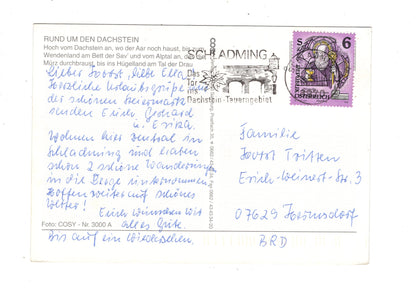 RUND UM DEN DACHSTEIN
Hoch vom Dachstein an, wo der Aar noch haust, bis zum
Wendenland am Bett der Sav' und vom Alptal an, das
Mürz durchbraust, bis ins Hügelland am Tal der Drau
Lieber Horst, liebe Ella
Herzliche Urlaubsgrüße aus
der schönen Steiermark
senden Erich, Gerhard
u. Erika.
Wohnen hier zentral in
Schladming und haben
schon 2 schöne Wanderungen
in die Berge unternommen.
Hoffen weiter auf schönes
Wetter!
Euch wünschen wir
alles Gute.
Bis auf ein Wiedersehen.
Foto: COSY - Nr. 3000 A
SCHLADMING
Das
Tor
zur
Dachstein-Tauernregion
S 6
Familie
Horst
Erich-Weinert-Str. 3
07629 Hermsdorf
BRD